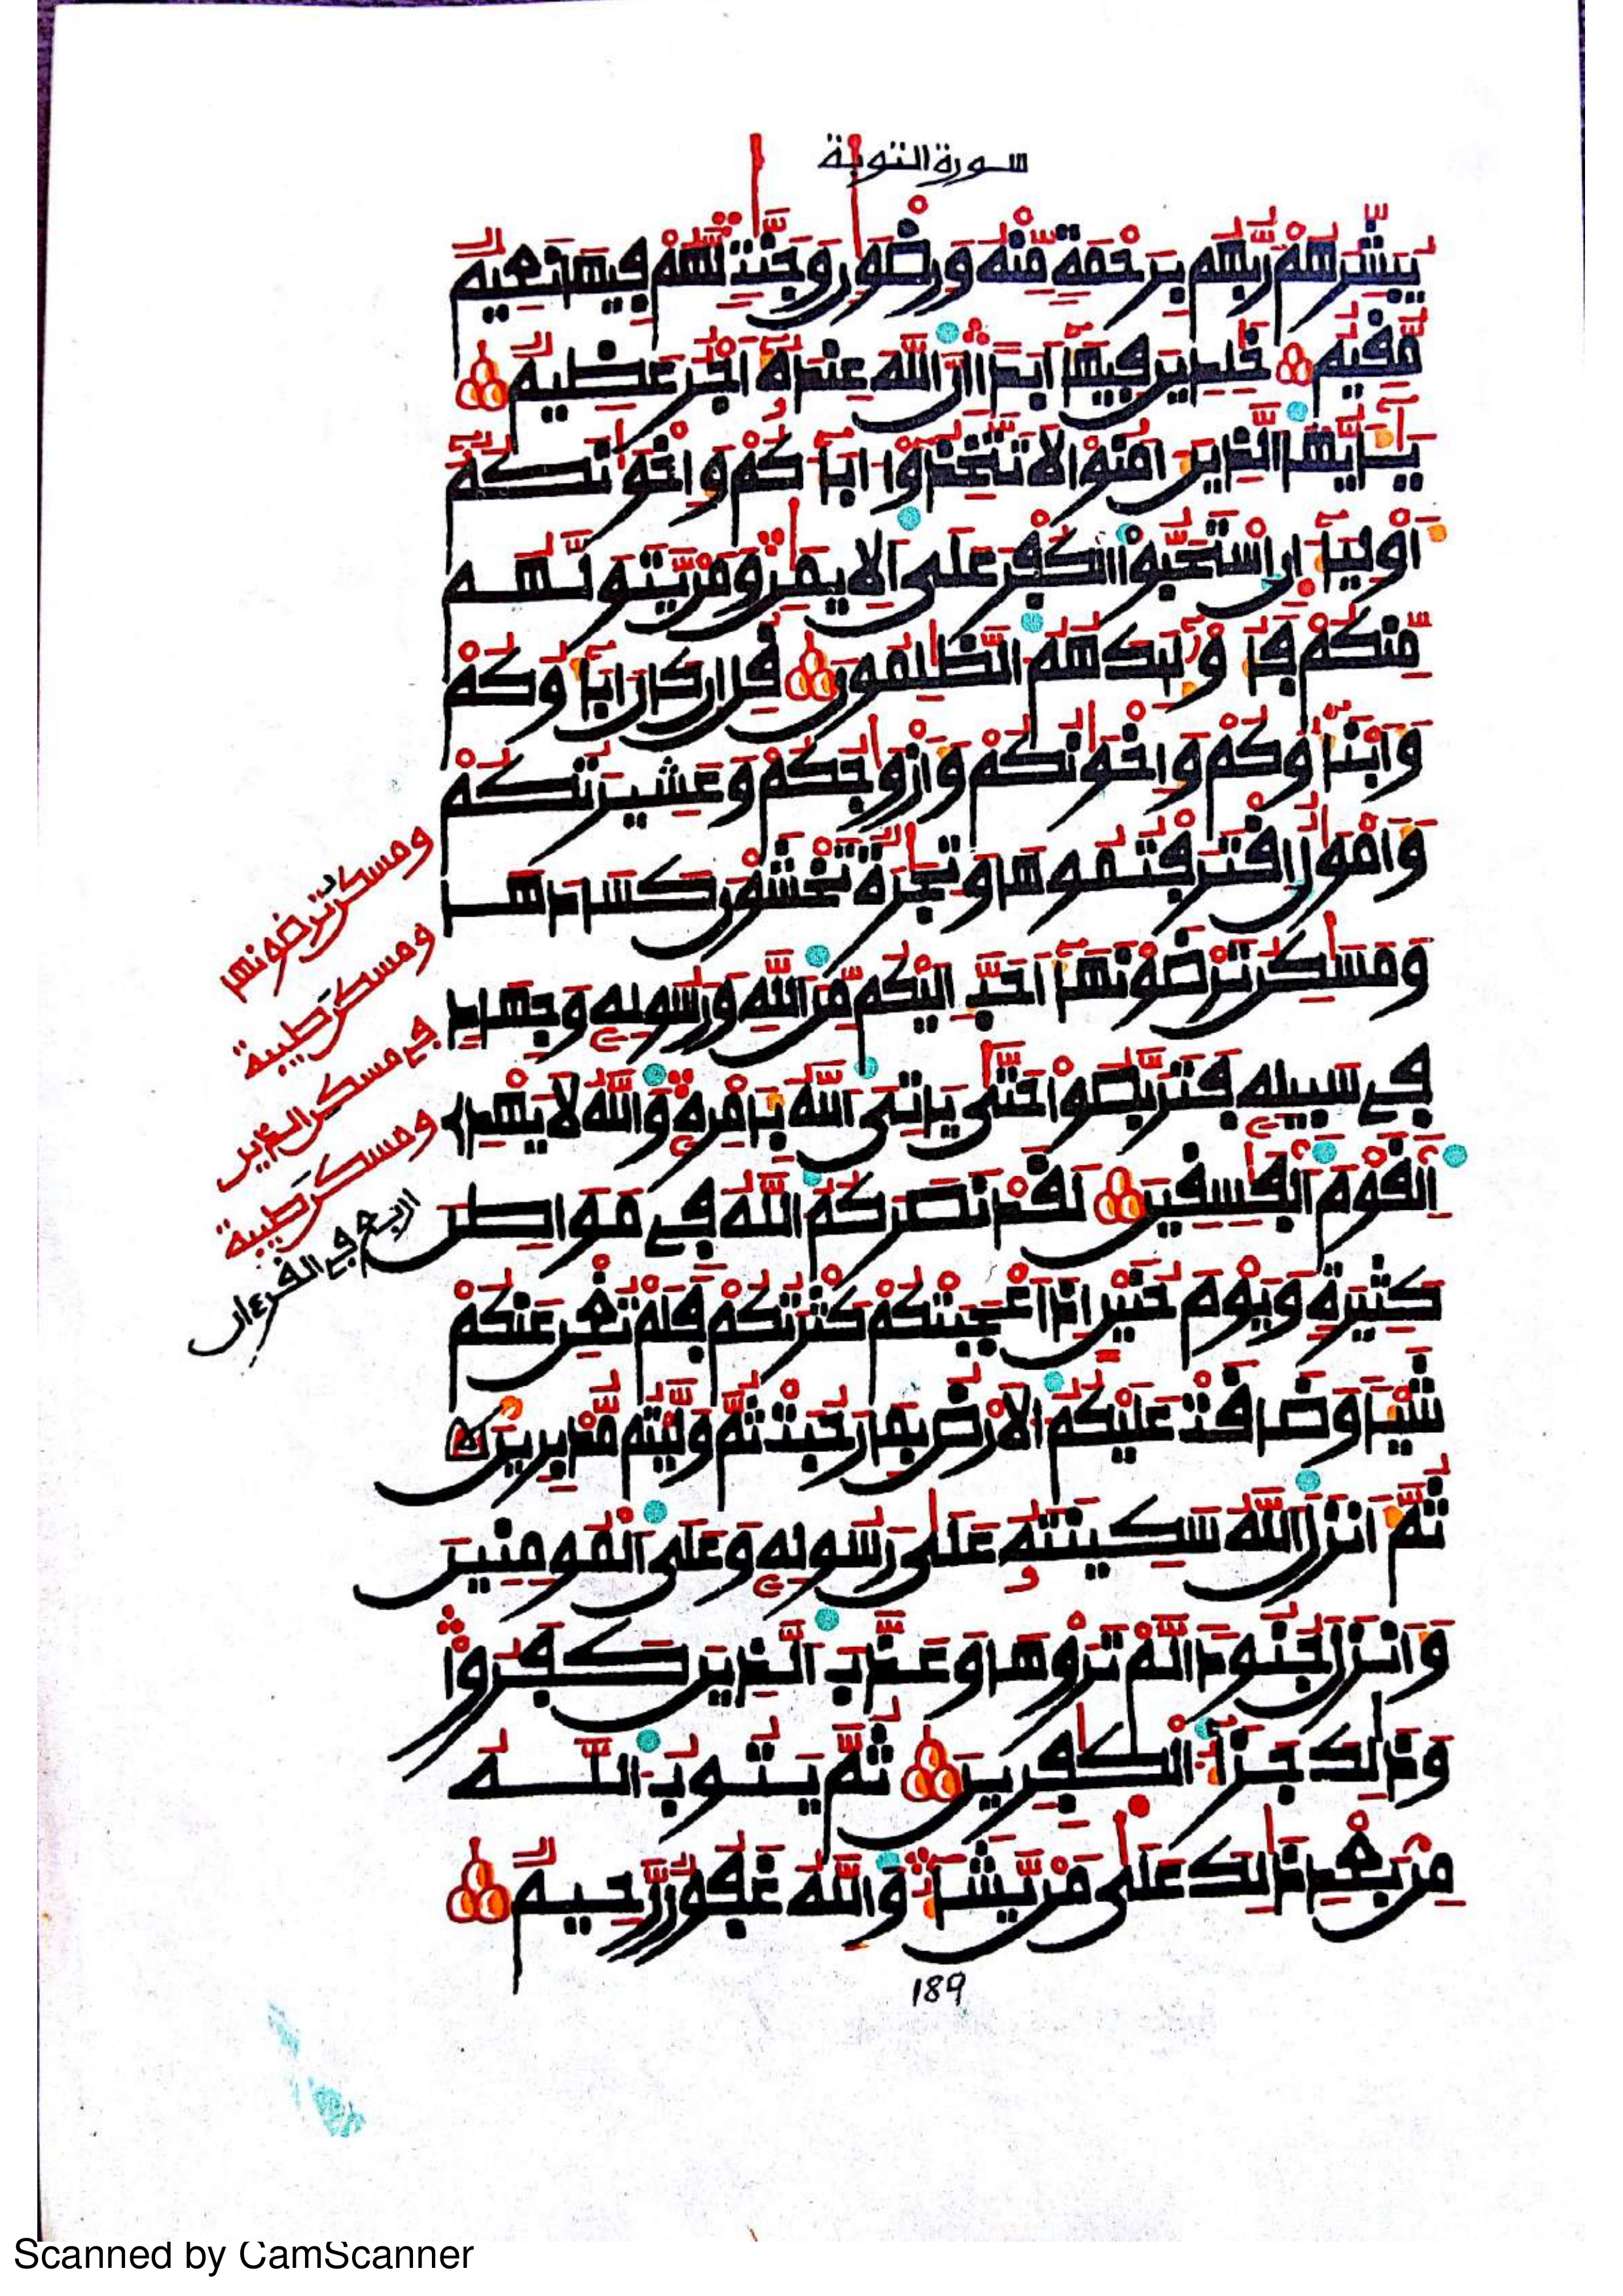 سورة التوبة
يُبَشِّرُهُمْ رَبُّهُم بِرَحْمَةٍ مِّنْهُ وَرِضْوَٰنٍ وَجَنَّٰتٍ لَّهُمْ فِيهَا نَعِيمٌ
مُّقِيمٌ خَٰلِدِينَ فِيهَا أَبَدًا إِنَّ ٱللَّهَ عِندَهُۥ أَجْرٌ عَظِيمٌ
يَٰأَيُّهَا ٱلَّذِينَ ءَامَنُوا۟ لَا تَتَّخِذُوٓا۟ ءَابَآءَكُمْ وَإِخْوَٰنَكُمْ
أَوْلِيَآءَ إِنِ ٱسْتَحَبُّوا۟ ٱلْكُفْرَ عَلَى ٱلْإِيمَٰنِ وَمَنْ يَّتَوَلَّهُم
مِّنكُمْ فَأُو۟لَٰٓئِكَ هُمُ ٱلظَّٰلِمُونَ قُلْ إِن كَانَ ءَابَآؤُكُمْ
وَأَبْنَآؤُكُمْ وَإِخْوَٰنُكُمْ وَأَزْوَٰجُكُمْ وَعَشِيرَتُكُمْ
وَأَمْوَٰلٌ ٱقْتَرَفْتُمُوهَا وَتِجَٰرَةٌ تَخْشَوْنَ كَسَادَهَا
وَمَسَٰكِنُ تَرْضَوْنَهَآ أَحَبَّ إِلَيْكُم مِّنَ ٱللَّهِ وَرَسُولِهِۦ وَجِهَادٍ
فِے سَبِيلِهِۦ فَتَرَبَّصُوا۟ حَتَّىٰ يَاتِيَ ٱللَّهُ بِأَمْرِهِۦ وَٱللَّهُ لَا يَهْدِي
ٱلْقَوْمَ ٱلْفَٰسِقِينَ لَقَدْ نَصَرَكُمُ ٱللَّهُ فِے مَوَاطِنَ
كَثِيرَةٍ وَيَوْمَ حُنَيْنٍ إِذْ أَعْجَبَتْكُمْ كَثْرَتُكُمْ فَلَمْ تُغْنِ عَنكُمْ
شَيْـًٔا وَضَاقَتْ عَلَيْكُمُ ٱلْأَرْضُ بِمَا رَحُبَتْ ثُمَّ وَلَّيْتُم مُّدْبِرِينَ
ثُمَّ أَنزَلَ ٱللَّهُ سَكِينَتَهُۥ عَلَىٰ رَسُولِهِۦ وَعَلَى ٱلْمُومِنِينَ
وَأَنزَلَ جُنُودًا لَّمْ تَرَوْهَا وَعَذَّبَ ٱلَّذِينَ كَفَرُوا۟
وَذَٰلِكَ جَزَآءُ ٱلْكَٰفِرِينَ ثُمَّ يَتُوبُ ٱللَّهُ
مِنۢ بَعْدِ ذَٰلِكَ عَلَىٰ مَنْ يَّشَآءُ وَٱللَّهُ غَفُورٌ رَّحِيمٌ
ومسكن ترضونها
ومسكن طيبة
في مسكن الذين
ومسكن طيبة
الربع في القرءان
189
Scanned by CamScanner